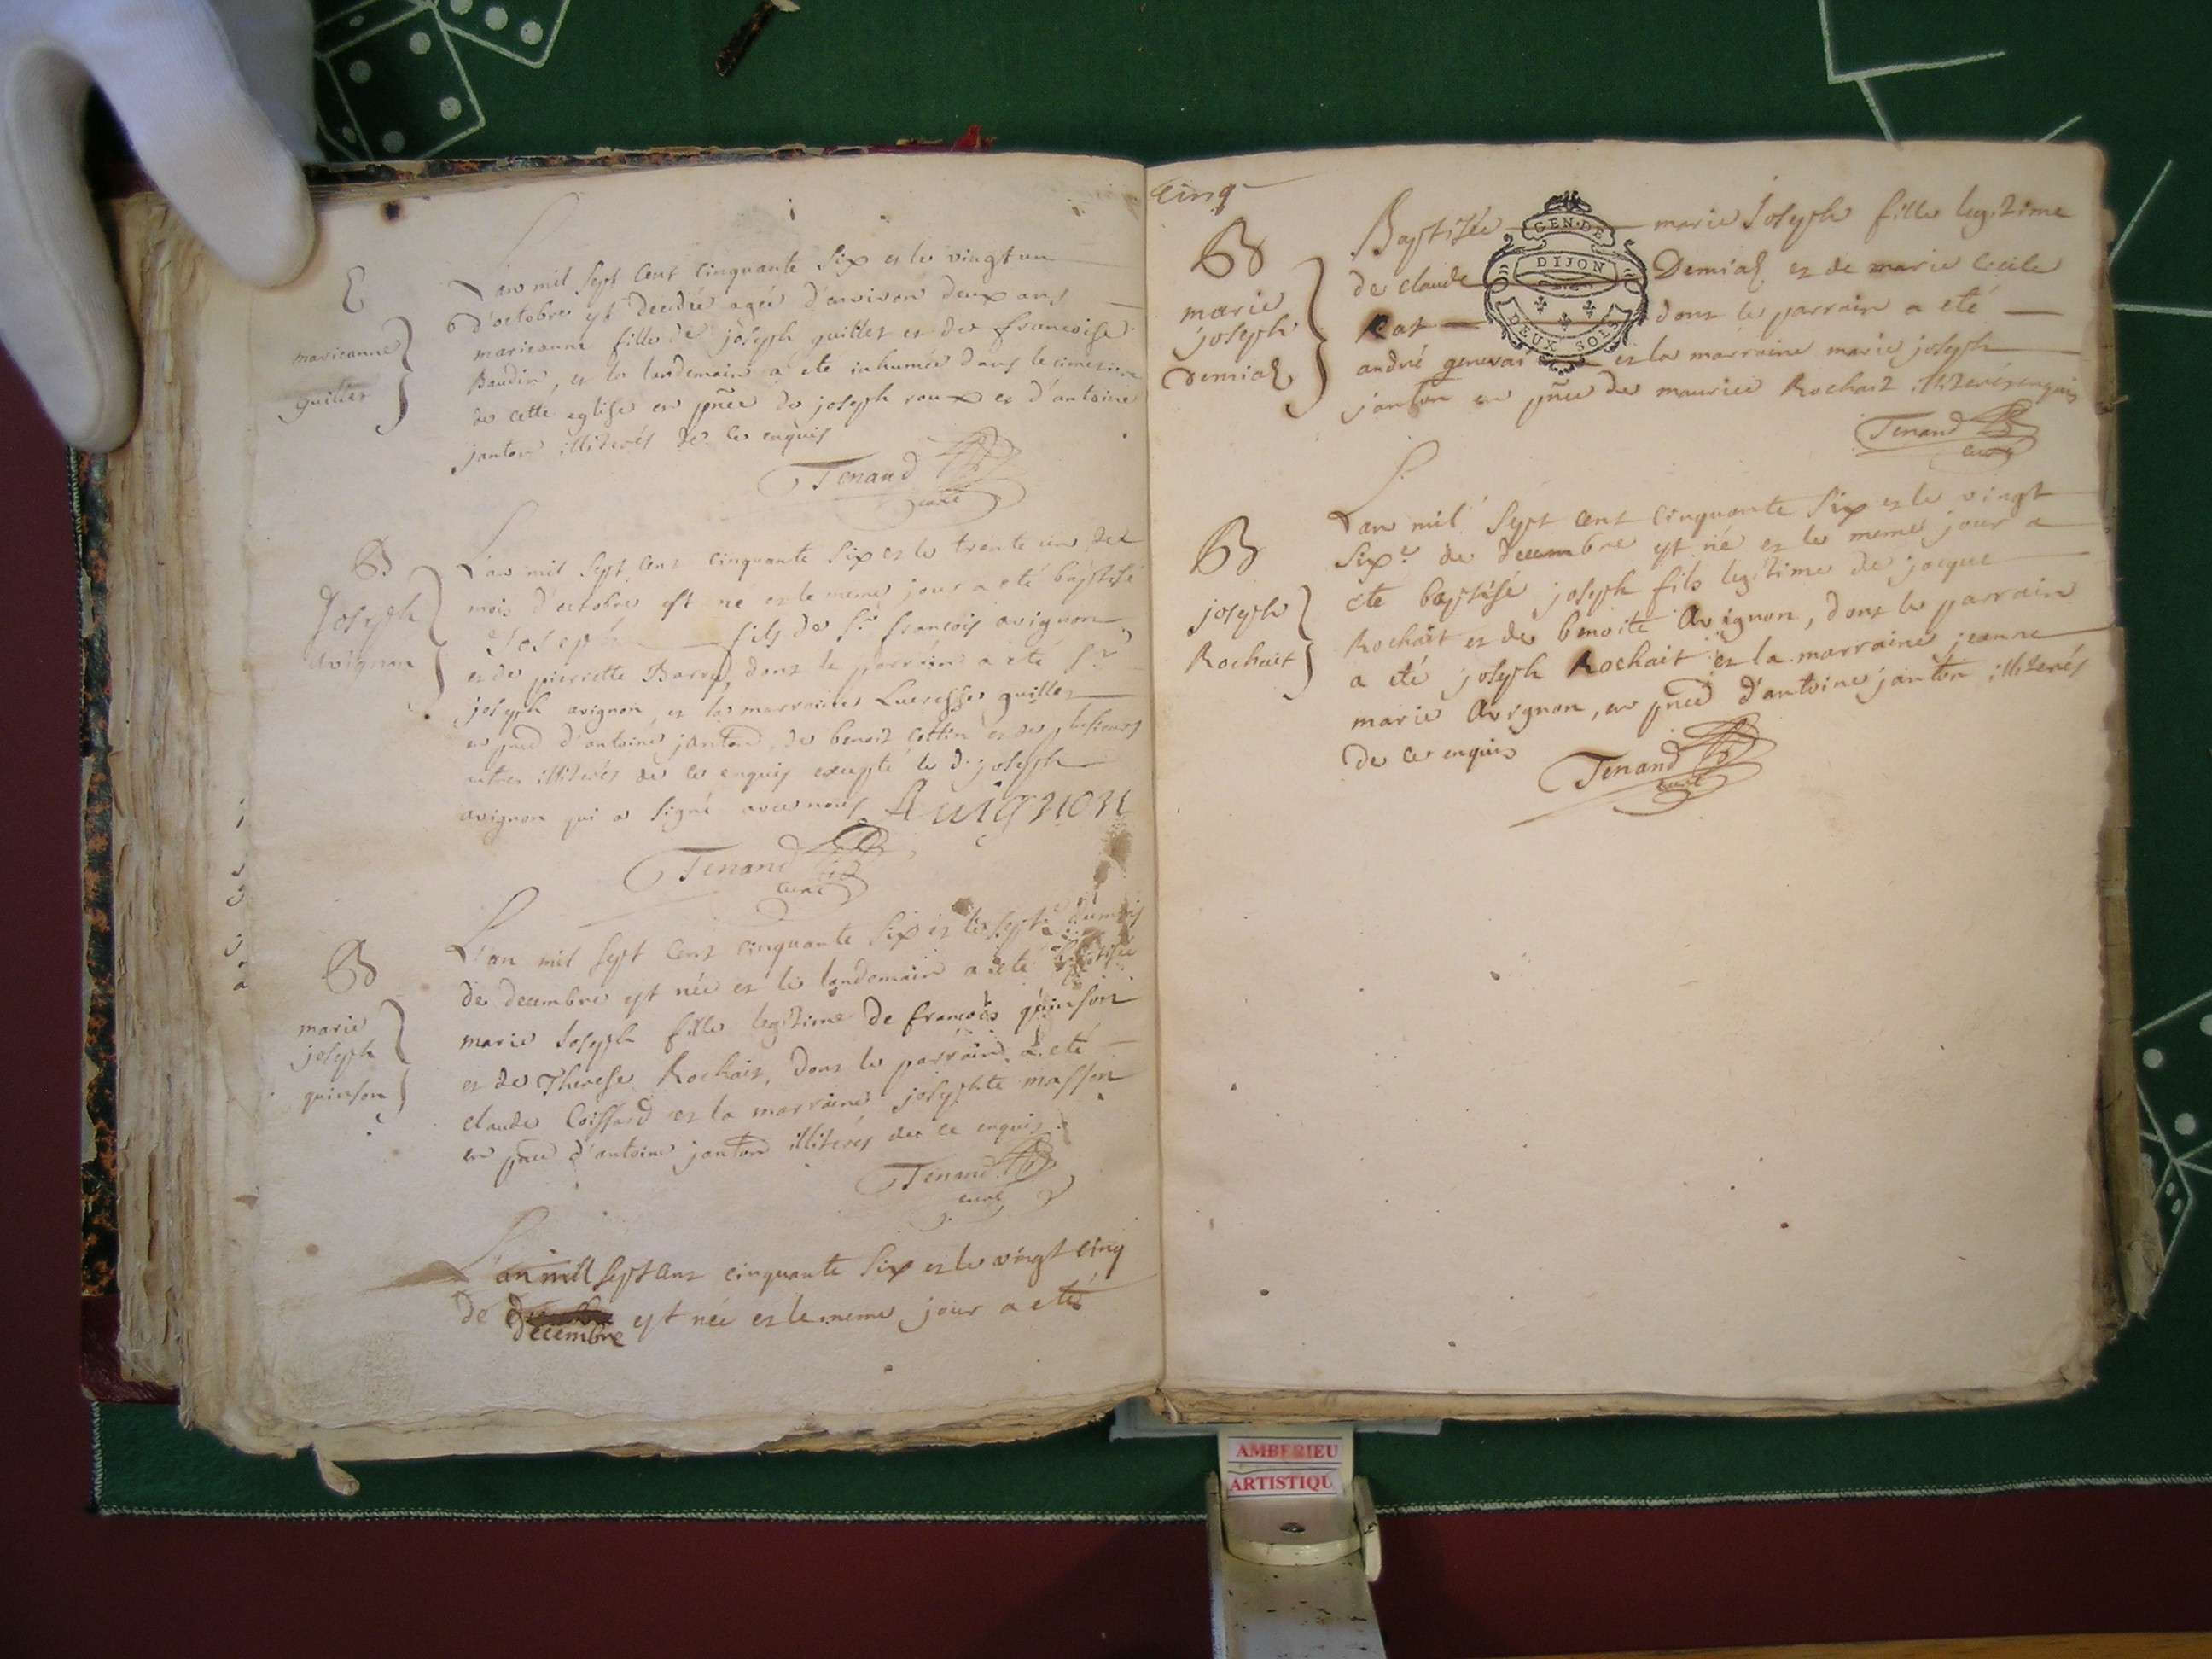 E
marieanne
guillet
L'an mil sept cent cinquante six et le vingt un
d'octobre est decedée agée d'environ deux ans
marieanne fille de joseph guillet et de francoise
Baudin, et le landemain a ete inhumée dans le cimetiere
de cette eglise en pñce de joseph roux et d'antoine
janton illiterés de ce enquis
Tenand
curé
B
Joseph
avignon
L'an mil sept cent cinquante six et le trente un du
mois d'octobre est ne et le meme jour a eté baptisé
Joseph fils de Sr. francois avignon
et de pierrette Barry, dont le parrain a eté Sr.
joseph avignon, et la marraine Lucresse guillet
en pñce d'antoine janton, de benoit cottin et de plusieurs
autres illiterés de ce enquis excepté le d. joseph
avignon qui a signé avec nous Auignon
Tenand
curé
B
marie
joseph
quinson
L'an mil sept cent cinquante six et le septe. du mois
de decembre est née et le landemain a eté baptisée
marie Joseph fille legitime de francois quinson
et de Therese Rochait, dont le parrain a eté
claude Coissard et la marraine josephte masson
en pñce d'antoine janton illiterés de ce enquis
Tenand
curé
L'an mill sept cent cinquante six et le vingt cinq
de decembre est née et le meme jour a eté
cinq
B
marie
joseph
Demiaz
Baptisée marie Joseph fille legitime
de claude Demiaz et de marie Cecile
Rat dont le parrain a eté
andré genevai et la marraine marie joseph
janton en pñce de maurice Rochait illiterés enquis
GEN. DE
DIJON
DEUX SOLS
Tenand
curé
B
joseph
Rochait
L'an mil sept cent cinquante six et le vingt
sixe. de decembre est né et le meme jour a
ete baptisé joseph fils legitime de jacque
Rochait et de benoite Avignon, dont le parrain
a eté joseph Rochait et la marraine jeanne
marie Avignon, en pñce d'antoine janton illiterés
de ce enquis
Tenand
curé
AMBERIEU
ARTISTIQU